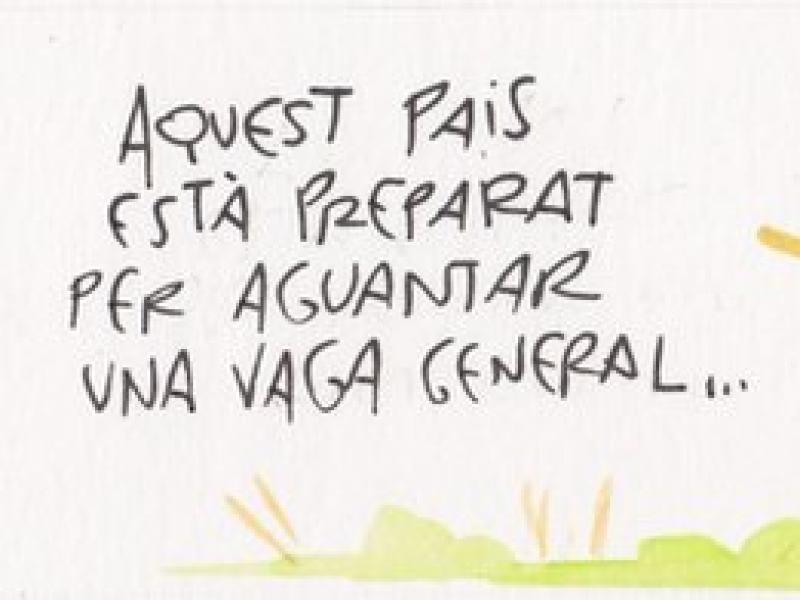 AQUEST PAIS
ESTÀ PREPARAT
PER AGUANTAR
UNA VAGA GENERAL...